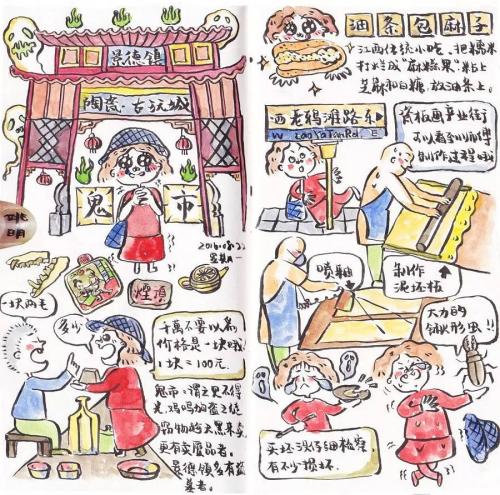 景德镇
陶瓷·古玩城
鬼 市
2016.08.22
星期一
一块两毛
多少
千萬不要以為
价格是一块哦!
1块=100元.
鬼市:谓之见不得
光,鸡鸣狗盗之徒
更有卖赝品者.
景德镇多有盗
墓者.
油条包麻子
江西传统小吃.把糯米
打烂成"麻糍果"粘上
芝麻和白糖,放油条上.
西老鸦滩路东
W LaoYaTanRd. E
瓷板画产业街
可以看到师傅
制作过程
喷釉
制作
泥坯板
大力的
锹形虫!!
买坯没仔细检察,
有不少损坏.